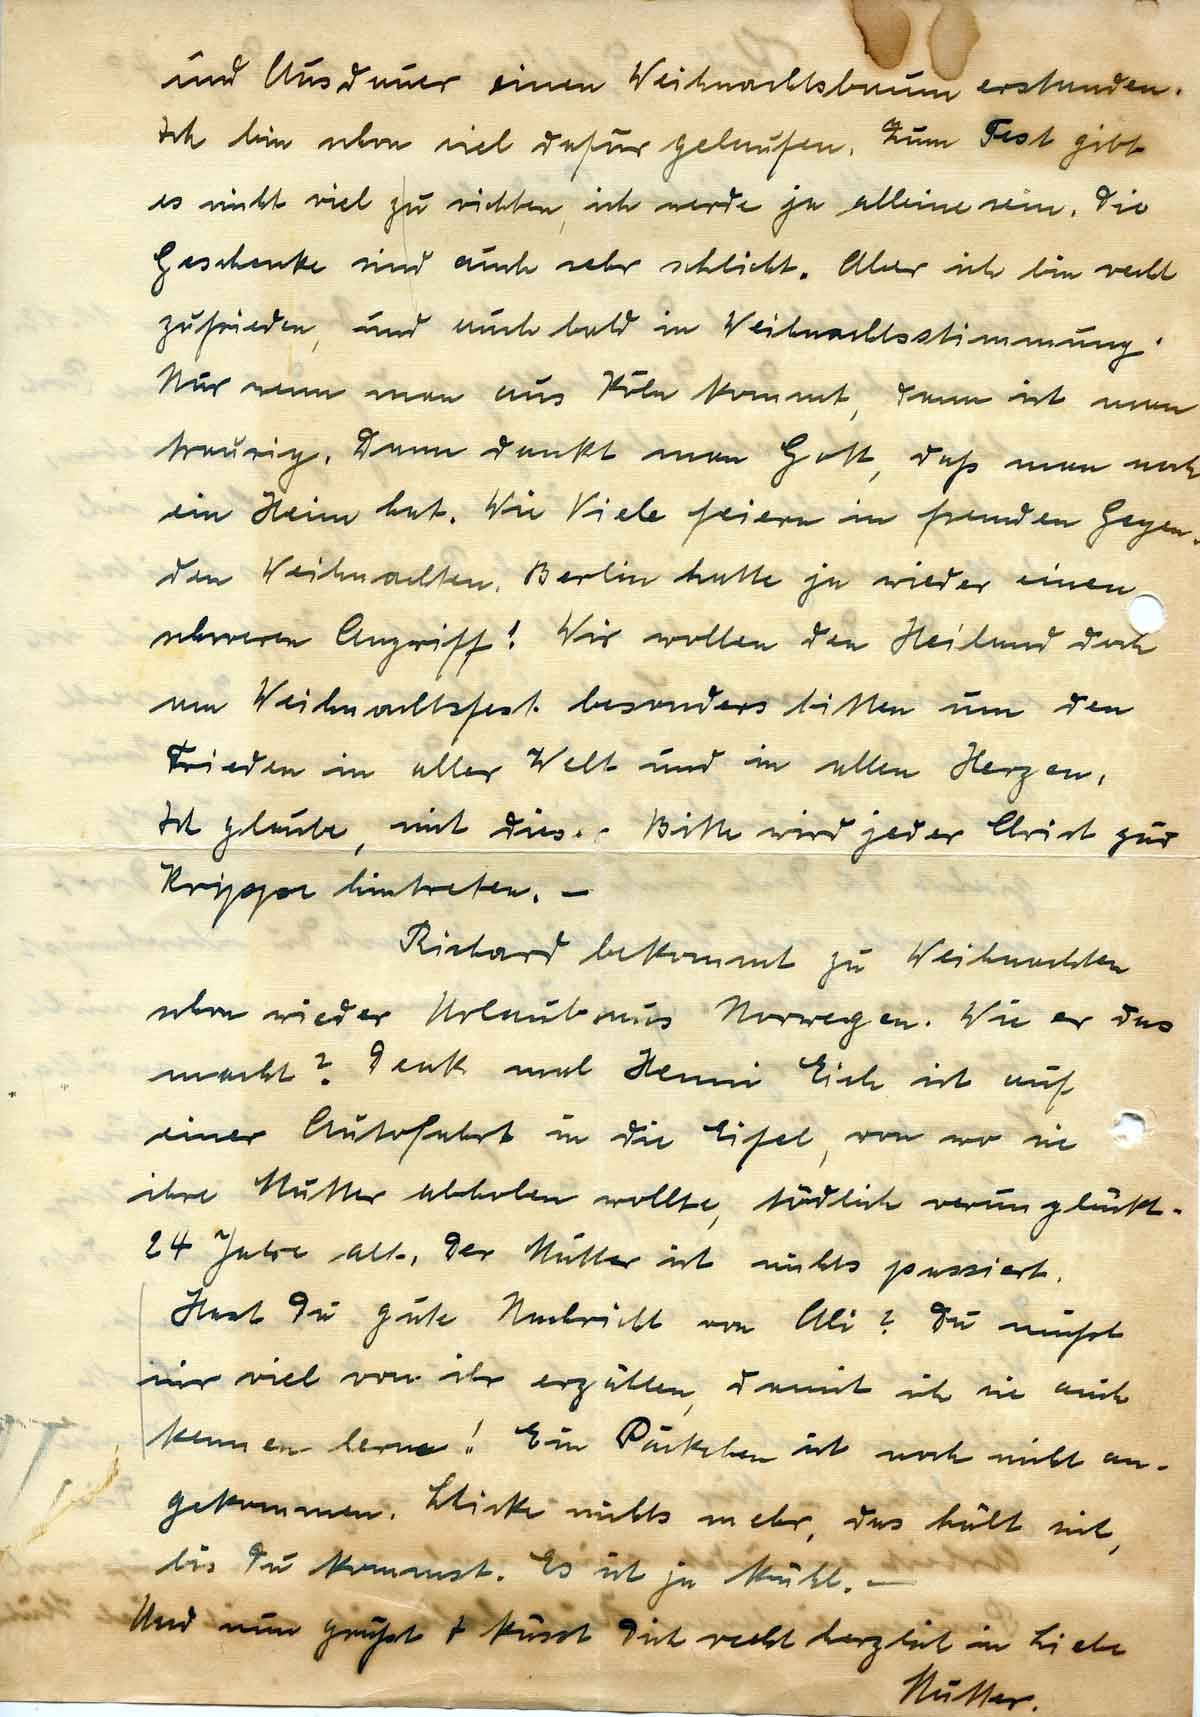 und Ausdauer einen Weihnachtsbaum erstanden.
Ich bin schon viel dafür gelaufen. Zum Fest gibt
es nicht viel zu richten, ich werde ja alleine sein. Die
Geschenke sind auch sehr schlicht. Aber ich bin recht
zufrieden, und auch bald in Weihnachtsstimmung.
Nur wenn man aus Köln kommt, dann ist man
traurig. Dann dankt man Gott, daß man noch
ein Heim hat. Wie Viele feiern in fremden Gegen-
den Weihnachten. Berlin hatte ja wieder einen
schweren Angriff! Wir wollen den Heiland doch
am Weihnachtsfest besonders bitten um den
Frieden in aller Welt und in allen Herzen.
Ich glaube, mit dieser Bitte wird jeder Christ zur
Krippe hintreten. –
Richard bekommt zu Weihnachten
schon wieder Urlaub aus Norwegen. Wie er das
macht? Denk mal Henni Eich ist auf
einer Autofahrt in die Eifel, von wo sie
ihre Mutter abholen wollte, tödlich verunglückt.
24 Jahre alt. Der Mutter ist nichts passiert.
Hast Du gute Nachricht von Ali? Du mußt
mir viel von ihr erzählen, damit ich sie auch
kennen lerne! Ein Päckchen ist noch nicht an-
gekommen. Schicke nichts mehr, das hält sich,
bis Du kommst. Es ist ja kühl. –
Und nun grüßt + küsst Dich recht herzlich in Liebe
Mutter.